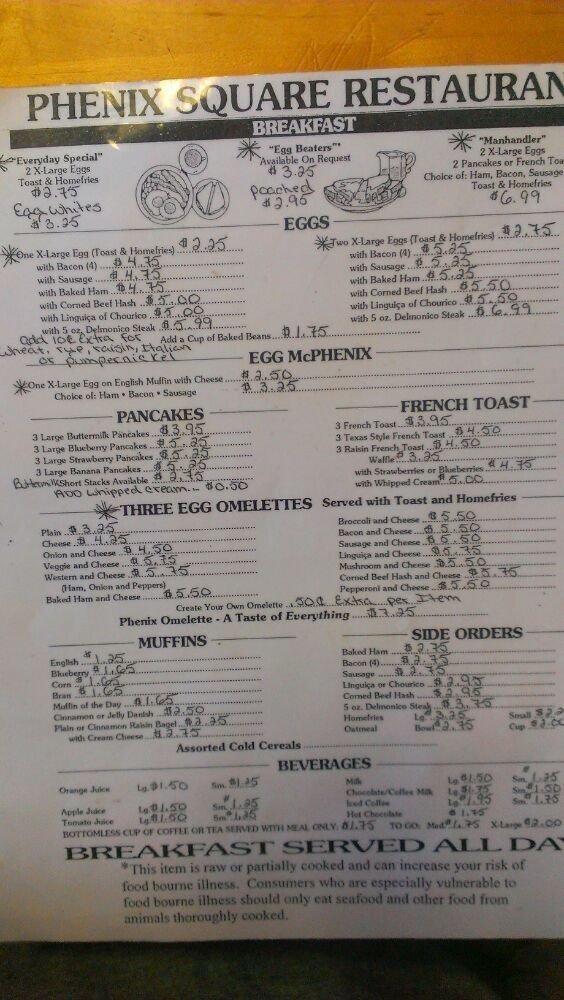 PHENIX SQUARE RESTAURAN
BREAKFAST
"Everyday Special"
2 X-Large Eggs
Toast & Homefries
$2.75
Egg Whites
$3.25
* "Egg Beaters"*
Available On Request
$3.25
poached
$2.95
* "Manhandler"
2 X-Large Eggs
2 Pancakes or French Toa
Choice of: Ham, Bacon, Sausage
Toast & Homefries
$6.99
EGGS
*One X-Large Egg (Toast & Homefries) $2.25
with Bacon (4) $4.75
with Sausage $4.75
with Baked Ham $4.75
with Corned Beef Hash $5.00
with Linguiça of Chourico $5.00
with 5 oz. Delmonico Steak $5.99
*Two X-Large Eggs (Toast & Homefries) $2.75
with Bacon (4) $5.25
with Sausage $5.25
with Baked Ham $5.25
with Corned Beef Hash $5.50
with Linguiça of Chourico $5.50
with 5 oz. Delmonico Steak $6.99
add 10¢ Extra for
wheat, rye, raisin, Italian
or pumpernickel
Add a Cup of Baked Beans $1.75
EGG McPHENIX
*One X-Large Egg on English Muffin with Cheese $2.50
Choice of: Ham • Bacon • Sausage $3.25
PANCAKES
3 Large Buttermilk Pancakes $3.95
3 Large Blueberry Pancakes $5.25
3 Large Strawberry Pancakes $5.25
3 Large Banana Pancakes $5.25
Buttermilk Short Stacks Available $2.75
Add whipped cream.. $0.50
FRENCH TOAST
3 French Toast $3.95
3 Texas Style French Toast $4.50
3 Raisin French Toast $4.50
Waffle $3.25
with Strawberries or Blueberries $4.75
with Whipped Cream $5.00
*THREE EGG OMELETTES Served with Toast and Homefries
Plain $3.25
Cheese $4.25
Onion and Cheese $4.50
Veggie and Cheese $5.75
Western and Cheese $5.75
(Ham, Onion and Peppers)
Baked Ham and Cheese $5.50
Broccoli and Cheese $5.50
Bacon and Cheese $5.50
Sausage and Cheese $5.50
Linguiça and Cheese $5.75
Mushroom and Cheese $5.50
Corned Beef Hash and Cheese $5.75
Pepperoni and Cheese $5.50
Create Your Own Omelette .50¢ Extra per Item
Phenix Omelette - A Taste of Everything $7.25
MUFFINS
English $1.25
Blueberry $1.65
Corn $1.65
Bran $1.65
Muffin of the Day $1.65
Cinnamon or Jelly Danish $2.50
Plain or Cinnamon Raisin Bagel $2.25
with Cream Cheese $2.75
SIDE ORDERS
Baked Ham $2.75
Bacon (4) $2.75
Sausage $2.75
Linguiça or Chourico $2.95
Corned Beef Hash $2.95
5 oz. Delmonico Steak $3.75
Homefries Lg. $3.25 Small $2.2
Oatmeal Bowl $2.75 Cup $2.00
Assorted Cold Cereals
BEVERAGES
Orange Juice Lg. $1.50 Sm. $1.25
Apple Juice Lg. $1.50 Sm. $1.25
Tomato Juice Lg. $1.50 Sm. $1.25
Milk Lg. $1.50 Sm. $1.25
Chocolate/Coffee Milk Lg. $1.75 Sm. $1.50
Iced Coffee Lg. $1.95 Sm. $1.75
Hot Chocolate $1.75
BOTTOMLESS CUP OF COFFEE OR TEA SERVED WITH MEAL ONLY: $1.75 TO GO: Med. $1.75 X-Large $2.00
BREAKFAST SERVED ALL DAY
*This item is raw or partially cooked and can increase your risk of
food bourne illness. Consumers who are especially vulnerable to
food bourne illness should only eat seafood and other food from
animals thoroughly cooked.